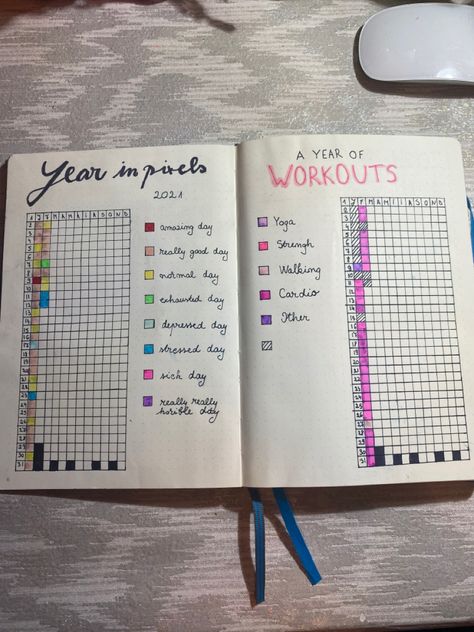 Year in pixels
2021
J F M A M J J A S O N D
amazing day
really good day
normal day
exhausted day
depressed day
stressed day
sick day
really really
horible day
A YEAR OF
WORKOUTS
Yoga
Strengh
Walking
Cardio
Other
J F M A M J J A S O N D